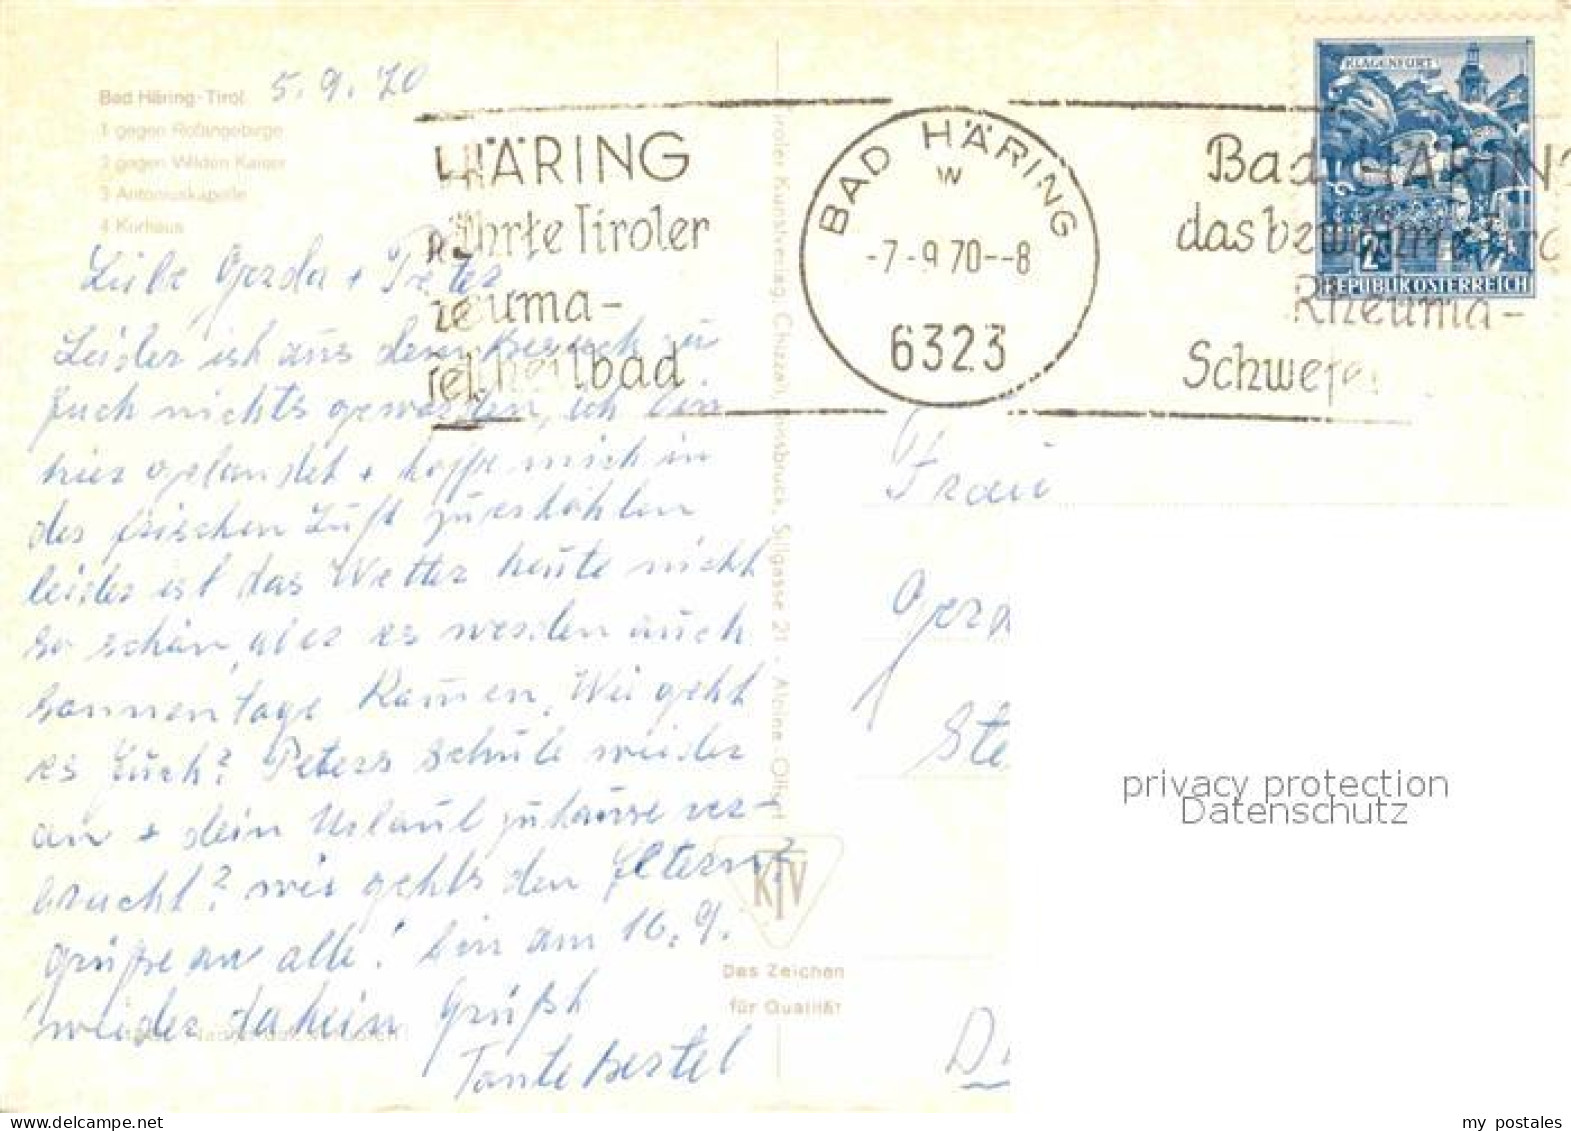 Bad Häring-Tirol
1 gegen Rofangebirge
2 gegen Wilden Kaiser
3 Antoniuskapelle
4 Kurhaus
5.9.70
HÄRING
ährte Tiroler
euma-
felheilbad
BAD HÄRING
w
-7-9 70--8
6323
Bad HÄRING
das bewährte Tiro
Rheuma-
Schwefe
KLAGENFURT
2
REPUBLIK ÖSTERREICH
Liebe Gerda + Peter
Leider ist aus dem Besuch zu
Euch nichts geworden, ich bin
hier gelandet + hoffe mich in
der frischen Luft zu erhohlen
leider ist das Wetter heute nicht
so schön, aber es werden auch
Sonnentage kommen. Wie geht
es Euch? Peters Schule wieder
an + dein Urlaub zuhause ver-
bracht? wie gehts den Eltern?
Grüße an alle! bin am 16.9.
wieder daheim Grüßt
Tante Bertel
Tiroler Kunstverlag Chizzali, Innsbruck, Sillgasse 21 - Alpine - Offset
KTV
Das Zeichen
für Qualität
Frau
Gerd
Ste
D
privacy protection
Datenschutz
Delcampe.net
my_postales